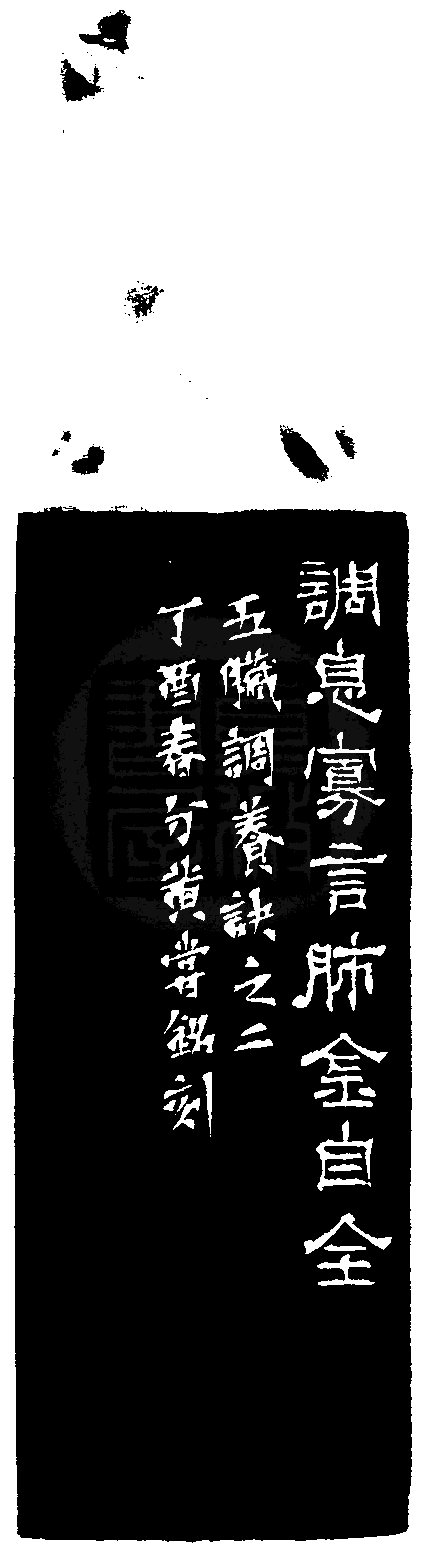 調息寡言肺金自全
五臟調養訣之二
丁酉春分黃嘗銘刻